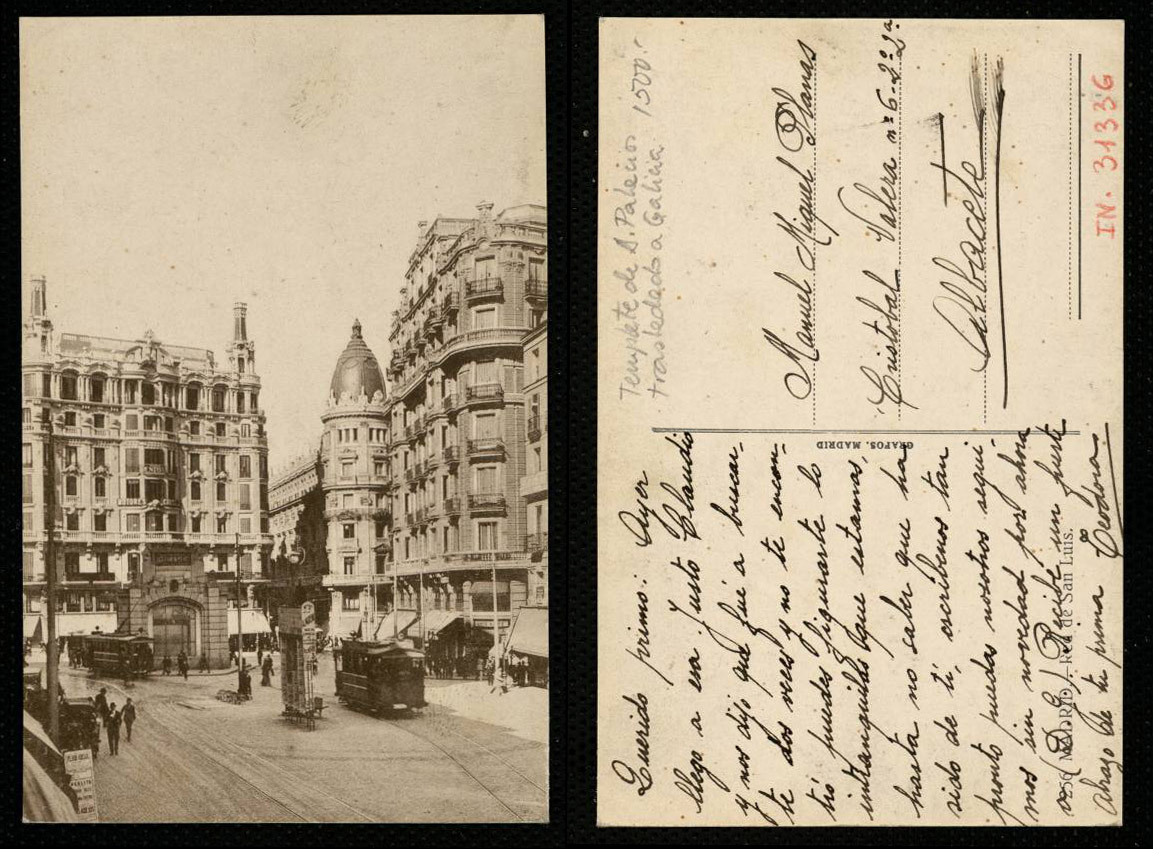 Templete de A. Palacios 1500.-
trasladado a Galicia
Manuel Miguel Planas
Cristobal Valera nº 6-2º 2ª
Albacete
IN. 31336
GRAFOS. MADRID
Querido primo: Ayer
llego a esa Justo Claudio
y nos dijo que fué a buscar-
te dos veces y no te encon-
tró puedes figurarte lo
intranquilos que estamos,
hasta no saber que ha
sido de ti, escribenos tan
pronto puedas nosotros segui-
mos sin novedad por ahora
(D. G.) Recibe un fuerte
abrazo de tu prima Teodora
256 MADRID.-Red de San Luis.